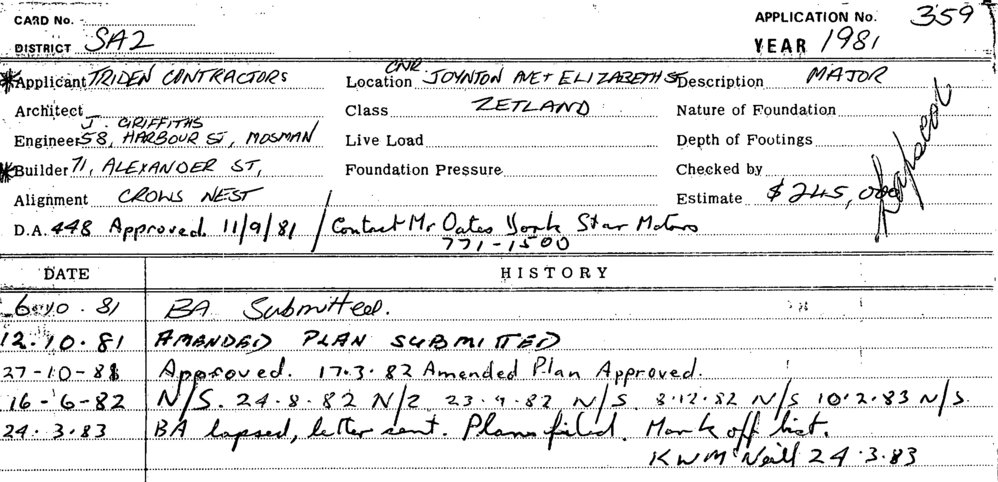 CARD No.
APPLICATION No. 359
DISTRICT SA2
YEAR 1981
*Applicant TRIDEN CONTRACTORS
Location CNR JOYNTON AVE + ELIZABETH ST
Description MAJOR
Architect
Class ZETLAND
Nature of Foundation
J. GRIFFITHS
Engineer 58, HARBOUR ST, MOSMAN
Live Load
Depth of Footings
*Builder 71, ALEXANDER ST,
Foundation Pressure
Checked by
Alignment CROWS NEST
Estimate $245,000
Lapsed
D.A. 448 Approved 11/9/81 / Contact Mr Oates York Star Motors
771-1500
DATE HISTORY
6.10.81 BA Submitted.
12.10.81 AMENDED PLAN SUBMITTED
27-10-81 Approved. 17.3.82 Amended Plan Approved.
16-6-82 N/S. 24.8.82 N/S 23.9.82 N/S 8.12.82 N/S 10.2.83 N/S.
24.3.83 BA lapsed, letter sent. Plans filed. Mark off list.
KWMcNeill 24.3.83